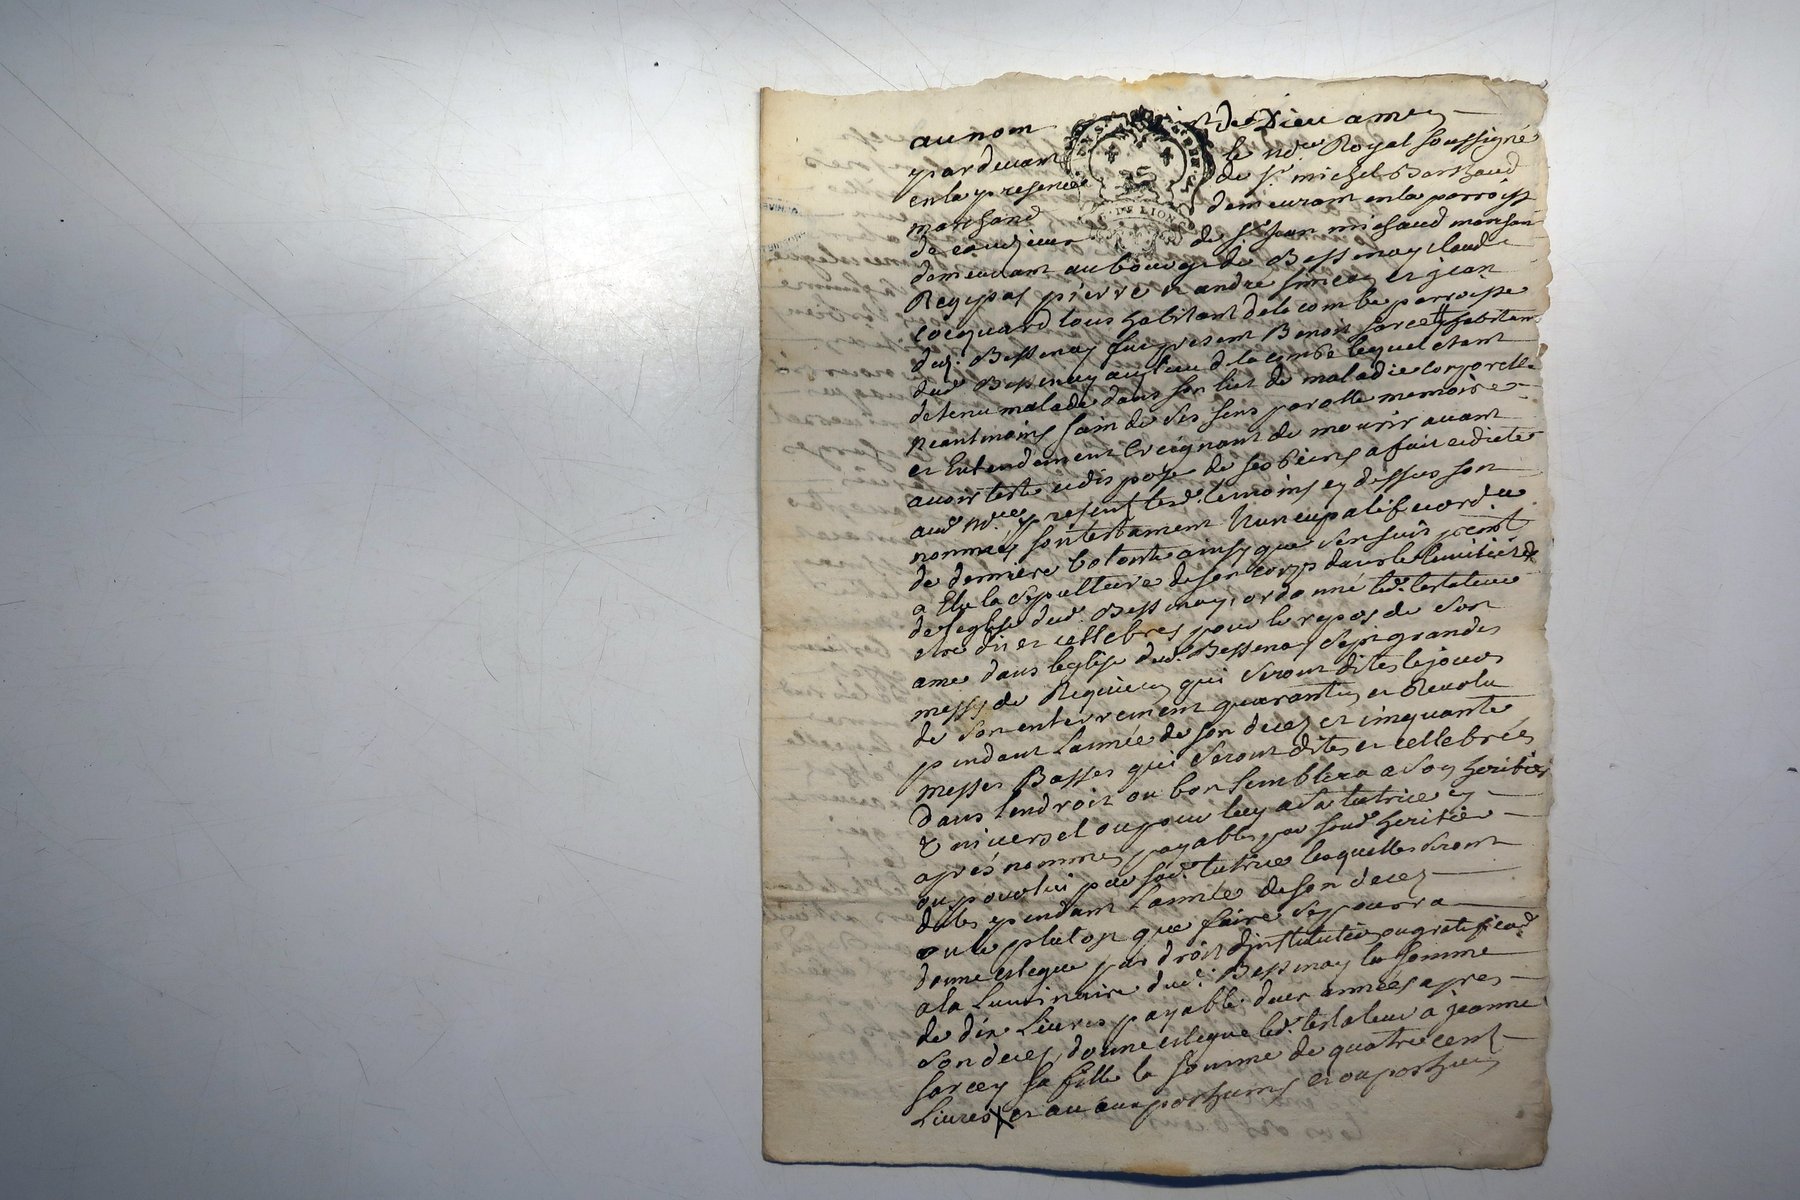 au nom de Dieu amen
pardevant le no.re Royal soussigné
en la presence de s.r michel Barthaud
marchand demeurant en la parroisse
de de s.r jean michaud marchand
demeurant au bourg de Bessenay claude
pierre et andre et jean
cocquard tous habitant de la combe parroisse
dud. Bessenay fut present Benoit Sarcey habitant
dud. Bessenay au lieu de la combe lequel etant
detenu malade dans son lict de maladie corporelle
neantmoins sain de ses sens parolle memoire
et Entendement Creignant de mourir avant
avoir testé et disposé de ses biens a fait et dicté
aud. no.re present les d. temoins cy dessus
nommés son testament Nuncupatif et ord.ce
de derniere Volonté ainsy que sensuit
a Elu la sepulture de son corps dans le cimitière
de leglise dud. Bessenay, ordonné led. testateur
etre dit et cellebrés pour le repos de son
ame dans leglise dud. Bessenay sept grandes
messes de Requiem qui seront dites le jour
de son enterrement quarantin et Revolu
pendant lannée de son deces et cinquante
messes Basses qui seront dites et cellebrées
dans lendroit ou bon semblera a son heritier
Universel ou pour luy a sa tutrice cy
aprés nommes payables par sond. heritier
ou pour lui par sad. tutrice lesquelles seront
dites pendant lannée de son deces
ou le plutost que faire se pourra
donne et legue par droit dinstitution
a la Luminaire dud. Bessenay la somme
de dix Livres payable deux années apres
son deces, donne et legue led. testateur à jeanne
Sarcey sa fille la somme de quatre cent
Livres et au aux posthumes et ou posthumes